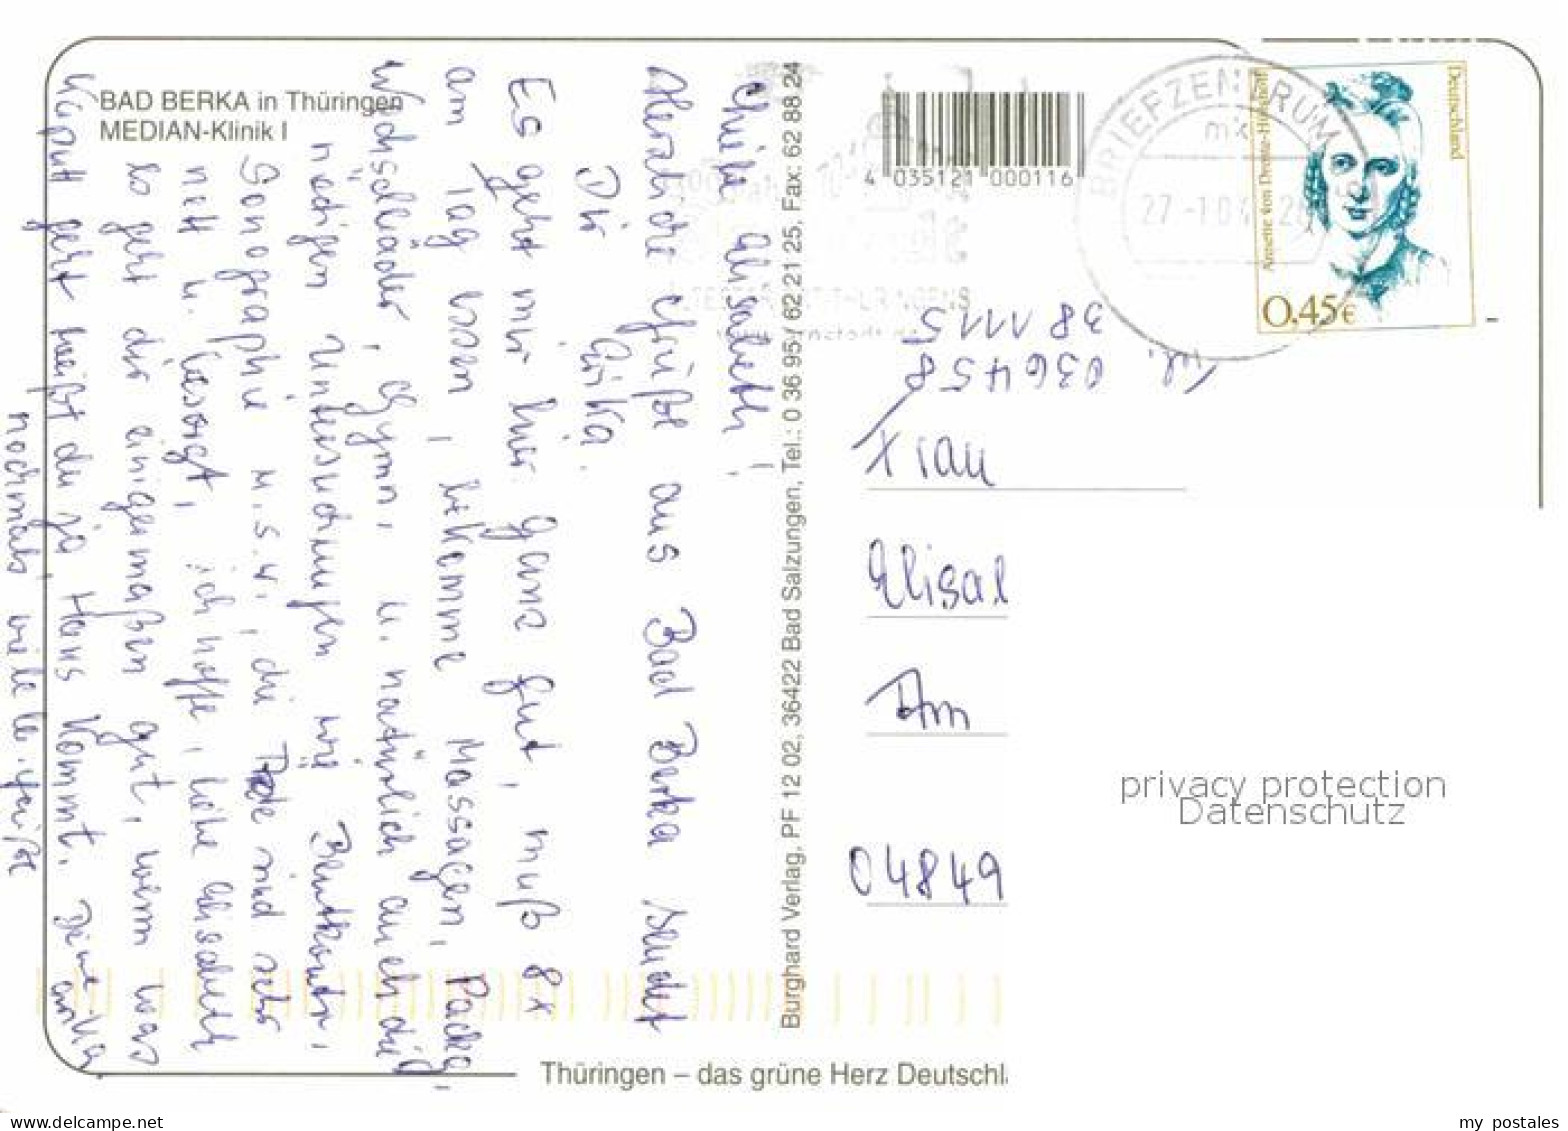 BAD BERKA in Thüringen
MEDIAN-Klinik I
Liebe Elisabeth!
Herzliche Grüße aus Bad Berka sendet
Dir Erika.
Es geht mir hier ganz gut, muß 8x
am Tag essen, bekomme Massagen, Packg,
Wechselbäder, Gymn, u. natürlich auch die
nötigen Untersuchungen wie Blutkontr.,
Sonographie u.s.w., die sind sehr
nett u. besorgt, ich hoffe, liebe Elisabeth
es geht dir einigermaßen gut, wenn was
kaputt geht weißt du ja, Hans kommt. Deine Erika.
nochmals viele l. Grüße
Burghard Verlag, PF 12 02, 36422 Bad Salzungen, Tel.: 0 36 95 / 62 21 25, Fax: 62 88 24
4 035121 000116
BRIEFZENTRUM
mk
27.-1.04
Deutschland
Annette von Droste-Hülshoff
0,45€
Tel.
036458
38 1115
Frau
Elisab
Am
04849
privacy protection
Datenschutz
Thüringen – das grüne Herz Deutschl
www.delcampe.net
my_postales